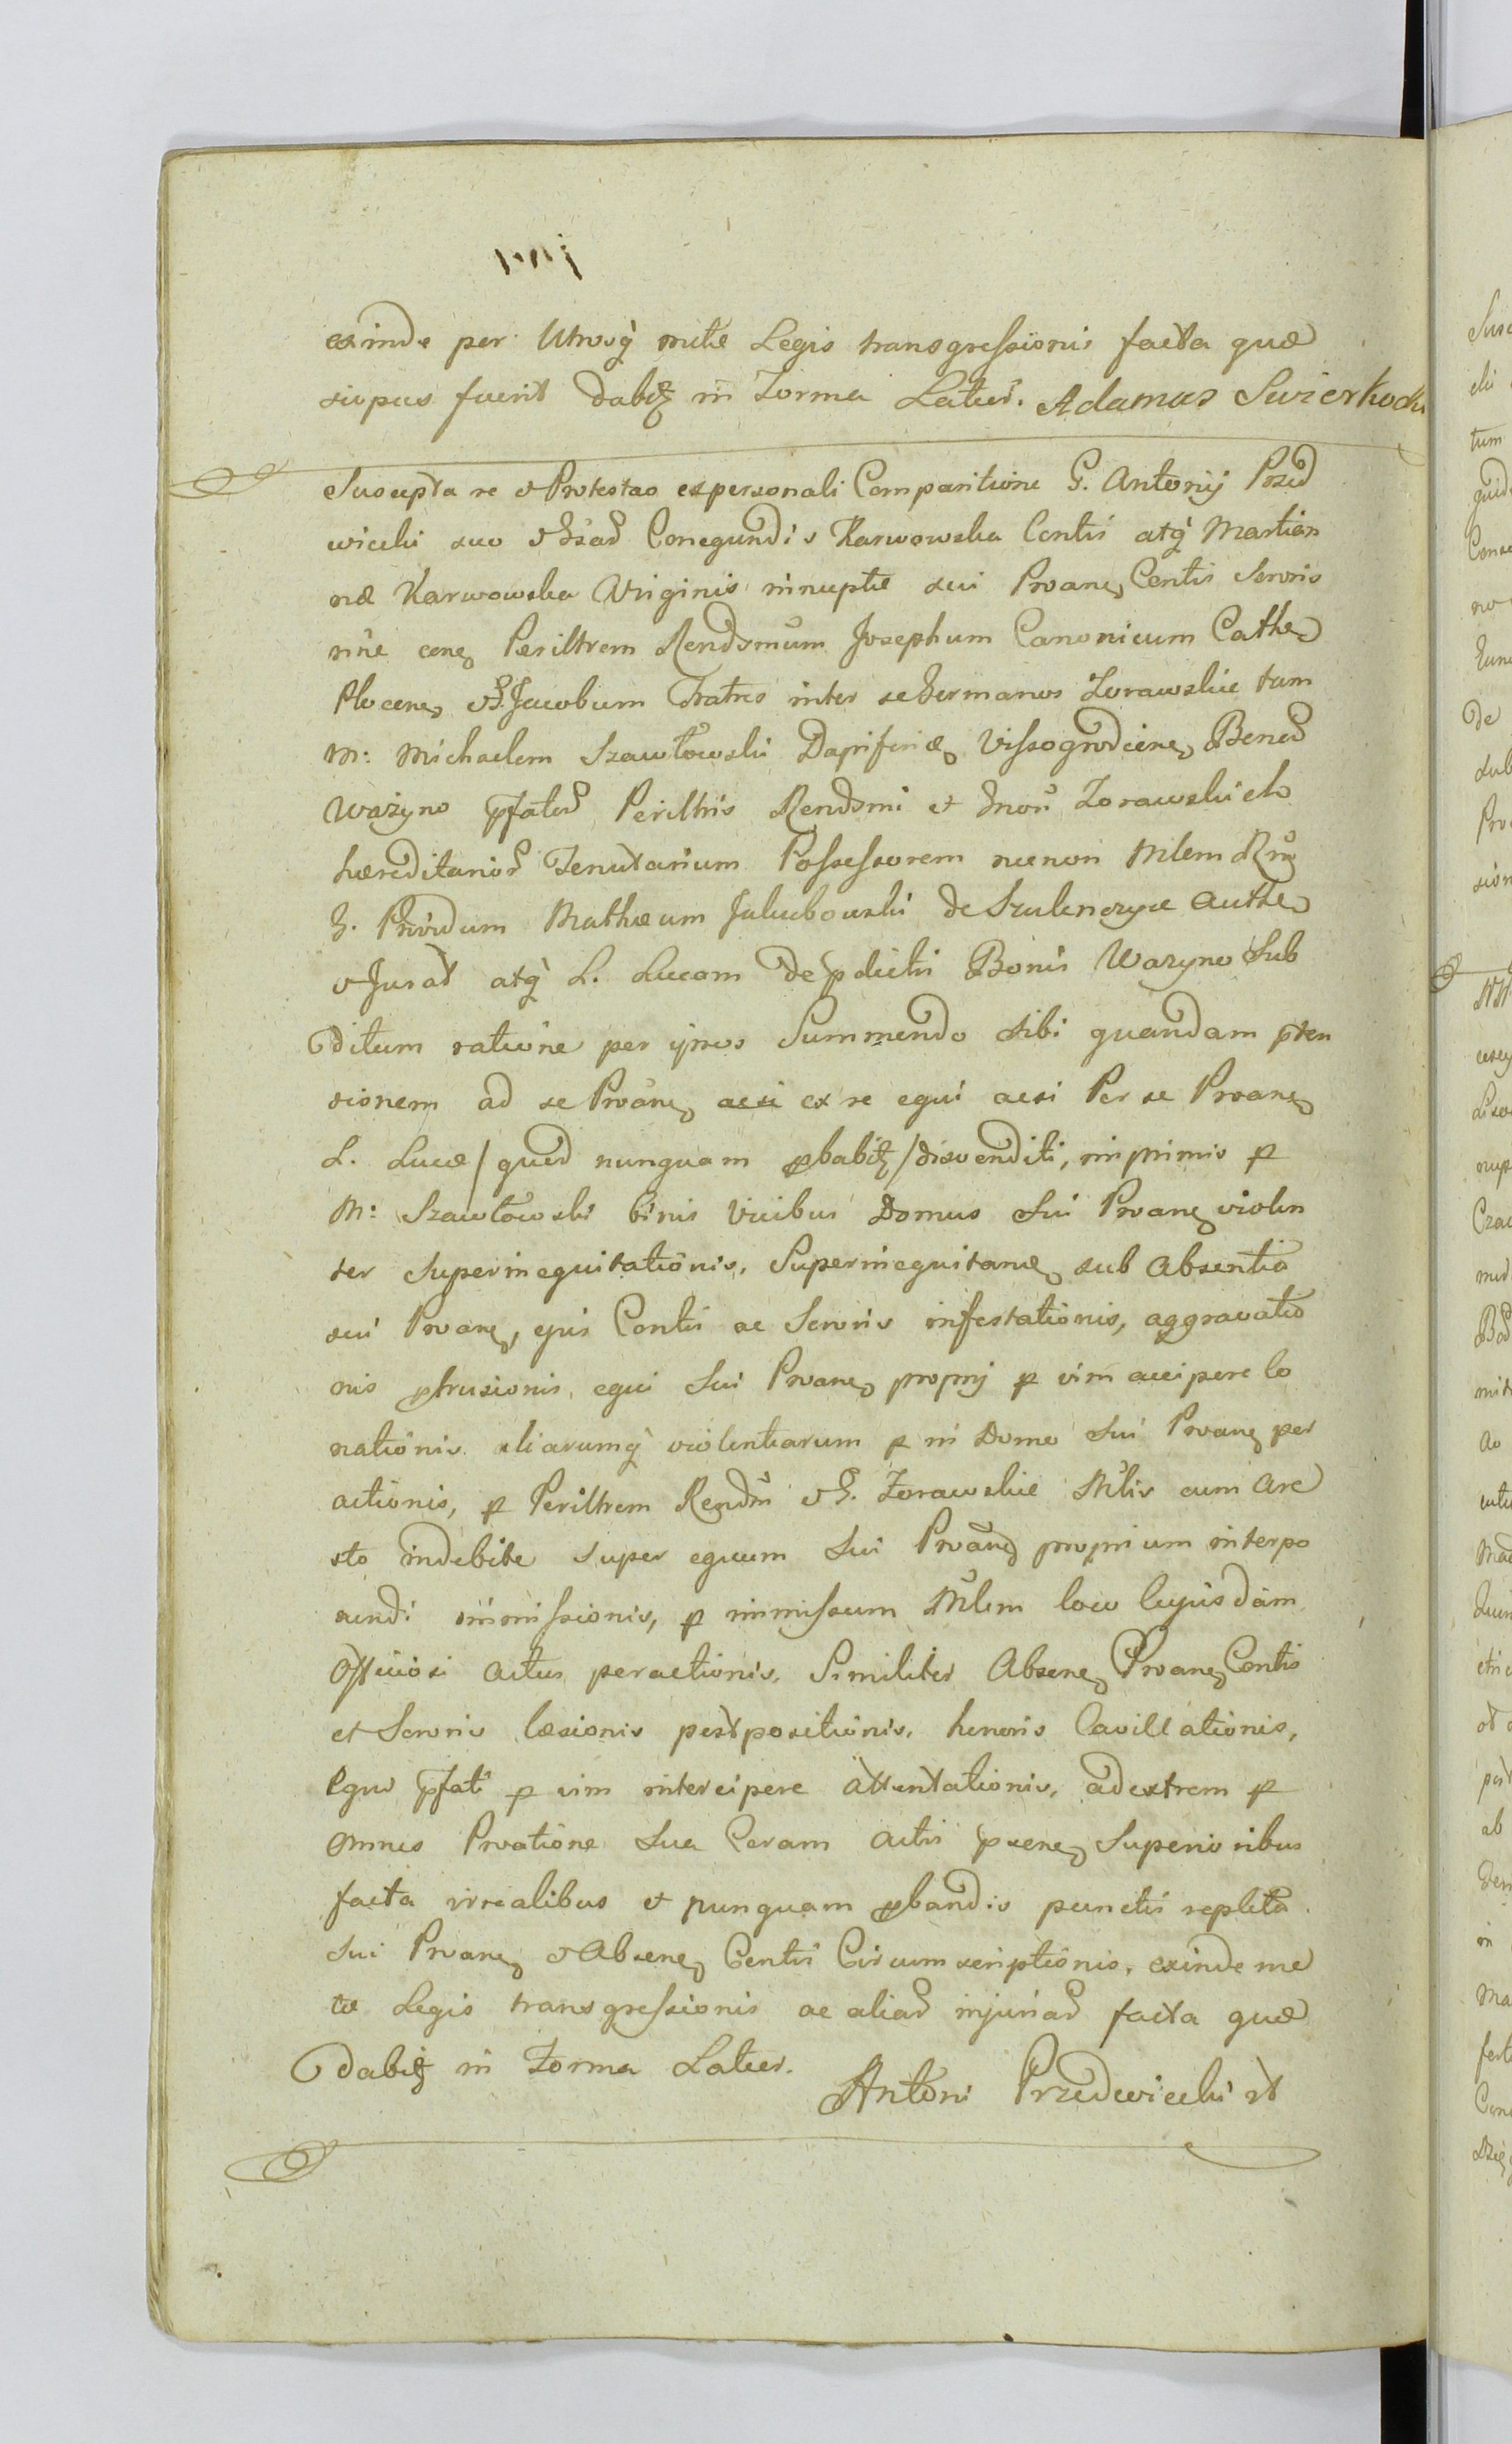 exinde per Utrosq̀ mitæ Legis transgressionis facta quæ
siopus fuerit dabitz in Forma Latus. Adamus Swierkocki
Suscepta re et Protestao ex personali Comparitione G. Antonij Przed
wiecki suo et Conegundis Karwowska Contis atq̀ Martian
næ Karwowska Virginis innuptæ sui Proane Contis Sororis
nñe cone Periltrem Rendsmum Josephum Canonicum Cathe
Plocene et G. Jacobum Fratres inter se Germanos Zorawskie tam
M: Michaelem Szawłowski Dapiferide Vissogrodiene Bonor
Ważyno pfator Periltris Rendsmi et Gnori Zorawskich
hæreditarior Tenutarium Possessorem necnon Mlem Rm
G. Providum Mathæum Jakubowski de Szulenczyce Authe
et Jurat atq̀ L. Lucam de pdictis Bonis Wazyno Sub
ditum ratione per ipsos Summendo sibi quandam pten
sionem ad se Proane acsi ex re equi acsi Per se Proane
L. Lucæ / quod nunquam pbabitz / disvenditi, inprimis p
M: Szawłowski binis Vicibus Domus Sui Proane violen
ter superinequitationis, Superinequitanæ sub Absentia
sui Proane, ejus Contis ac Sororis infestationis, aggravatio
nis ptrusionis, equi Sui Proane proprij p vim accipere Co
nationis aliarumq̀ violentiarum p in Domo Sui Proane per
actionis, p Periltrem Rendm et G. Zorawskie Mlis cum Are
sto indebite super equum Sui Proane proprium interpo
nendi immissionis, p immissum Mlem loco Cujusdam
Officiosi actus peractionis, Similiter Absene Proane Contis
et Sororis læsionis postpositionis, honoris Cavillationis,
Equo pfati p vim intercipere attentationis, adextrem p
omnes Proatione Sua Coram actis psene Superioribus
facta irrealibus et nunquam pbandis punctis repleta
Sui Proane et Absene Contis Circumscriptionis, exinde me
tæ Legis transgressionis ac aliar injuriar facta quæ
dabitz in Forma Latus.
Antoni Przedwiecki